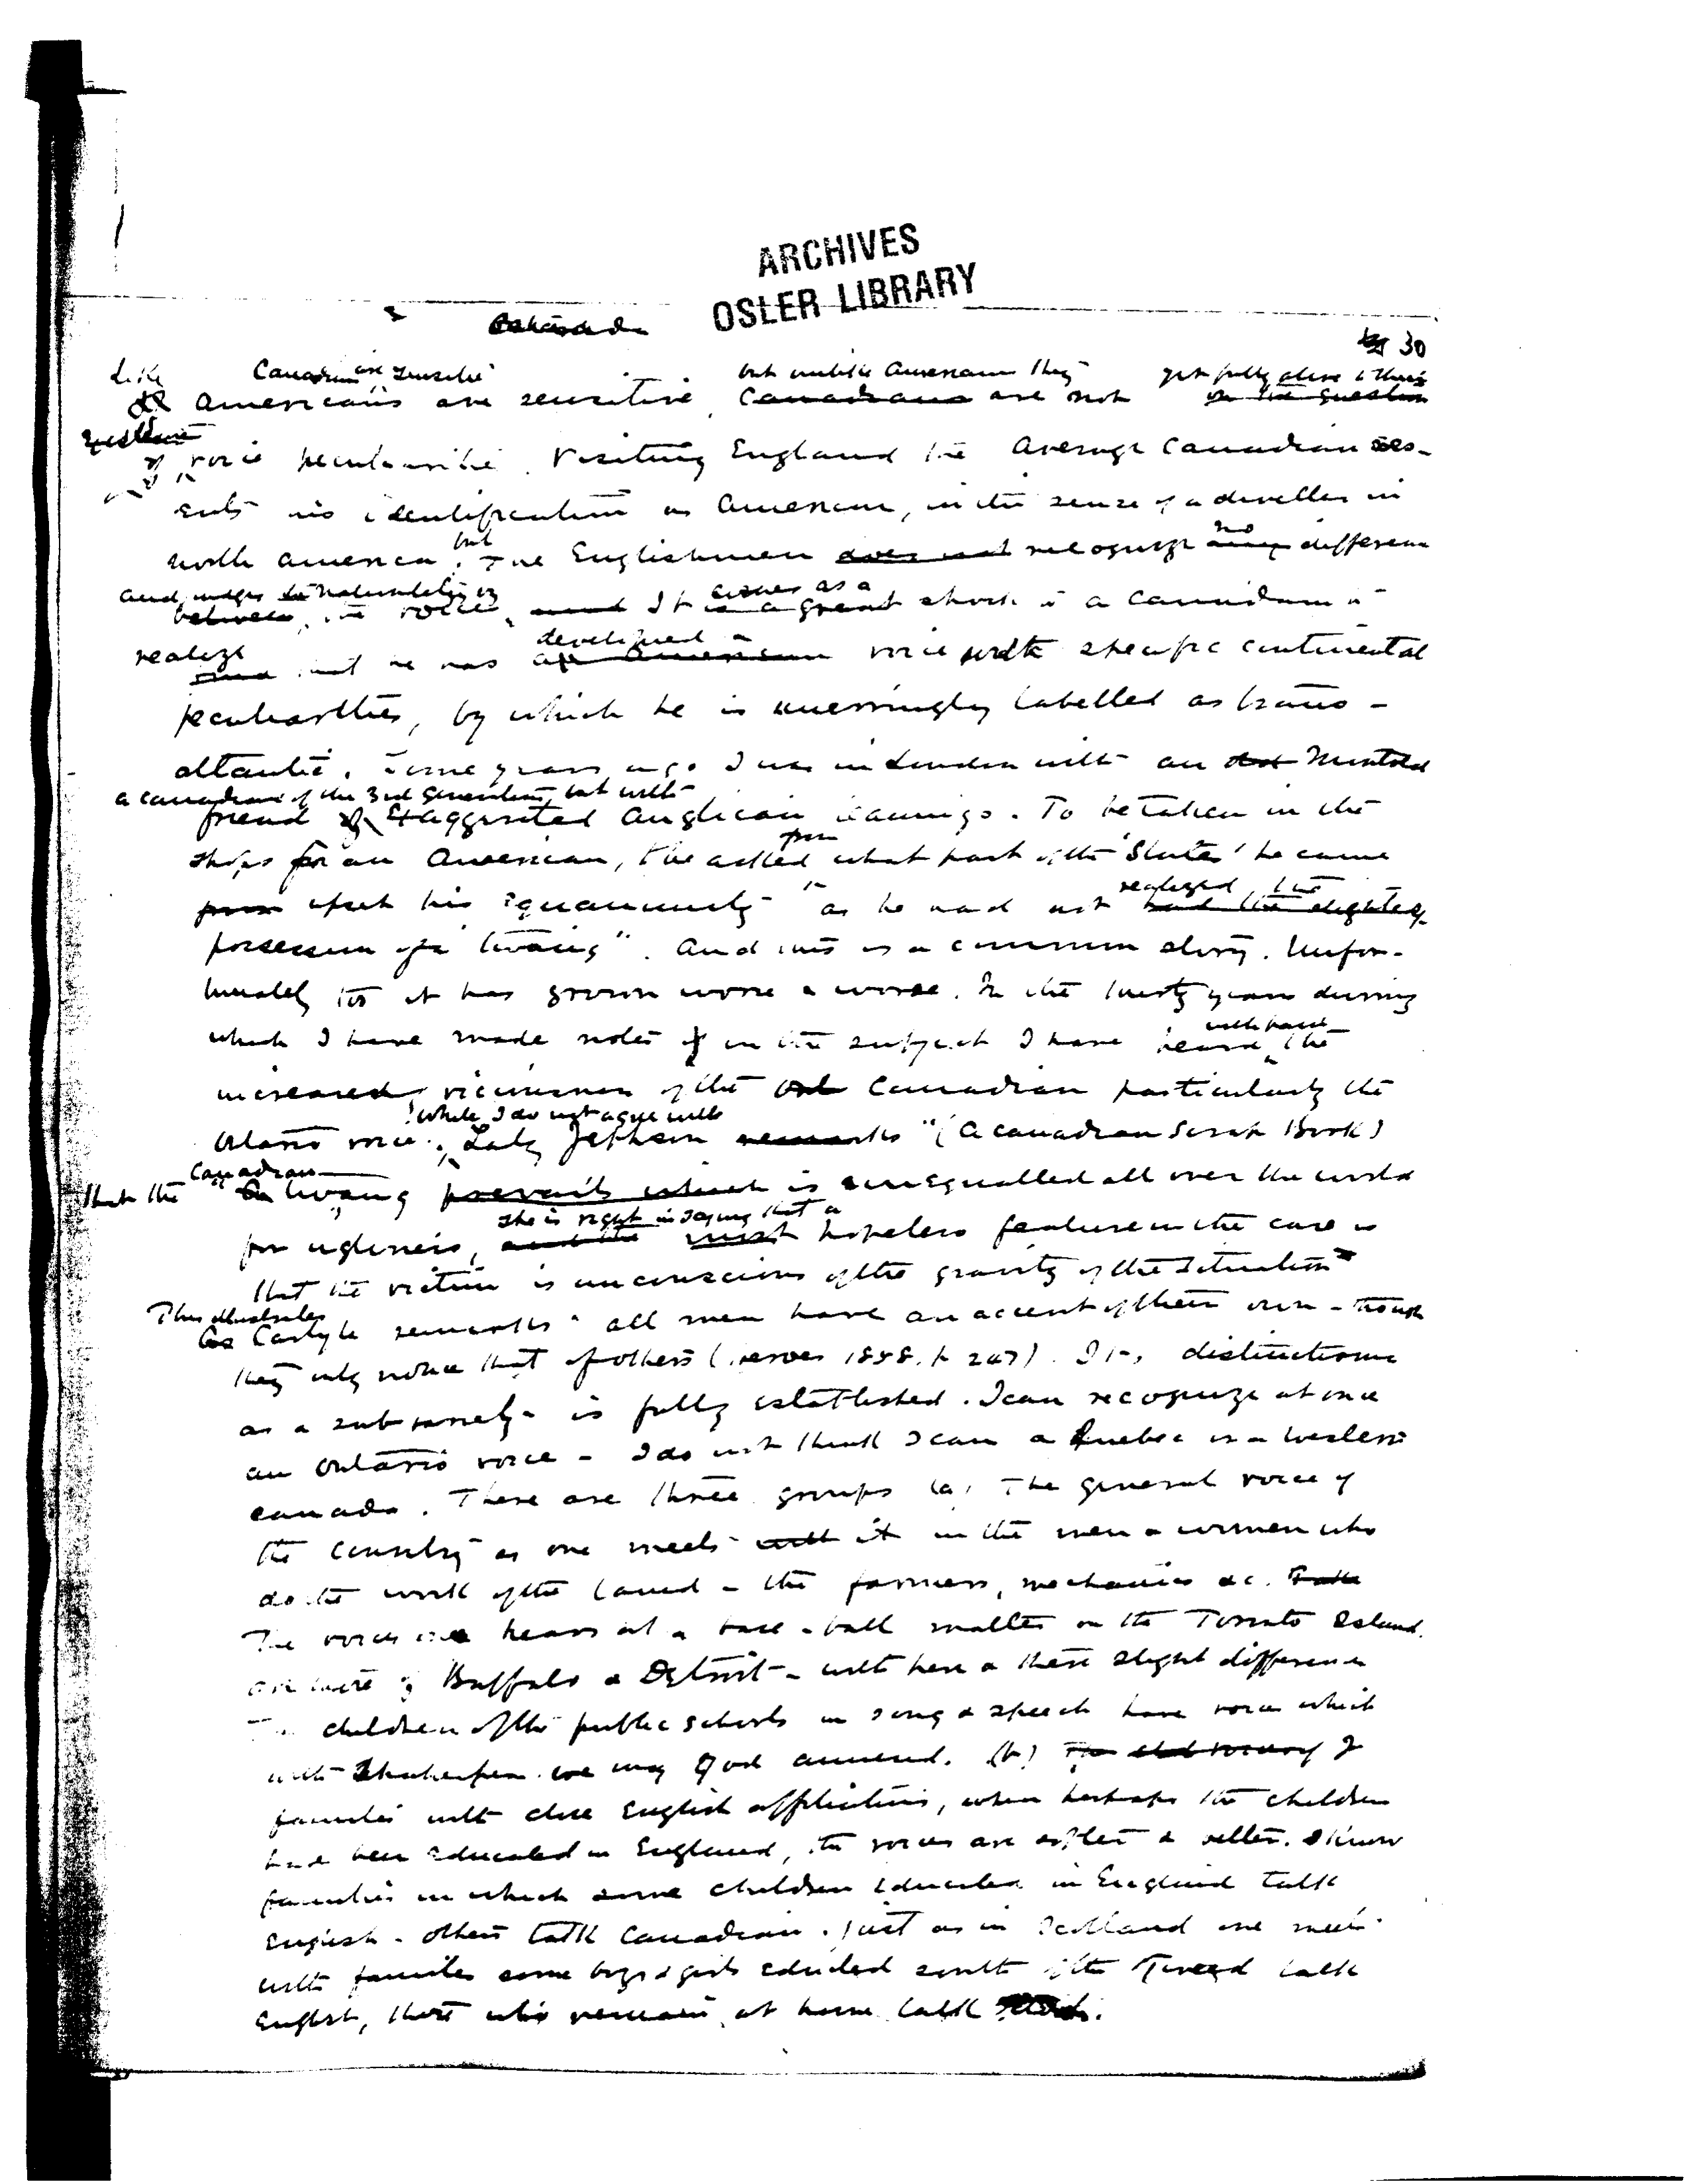 ARCHIVES
OSLER LIBRARY
30
Like Canadian are sensitive but unlike Americans they yet fully alive to their
Americans are sensitive, Canadians are not on the question
question
of voice peculiarities. Visiting England the average Canadian res-
ents his identification as American, in the sense of a dweller in
but no
north America. The Englishmen does not recognize any difference
and judges nationality by comes as a
between the voice, and It is a great shock to a Canadian to
realize developed a
find that he has an American voice with specific continental
peculiarities, by which he is unerringly labelled as trans-
atlantic. Some years ago I was in London with an old Montreal
a Canadian of the 3rd generation, but with
friend of exaggerated Anglican leanings. To be taken in the
from
shops for an American, to be asked what part of the 'States' he came
realized the
from upset his equanimity as he had not had the slightest
possession of a "twang". And this is a common story. Unfor-
tunately too it has grown worse & worse. In the twenty years during
with pain
which I have made notes of on the subject I have heard the
increased of the Canadian particularly the
While I do not agree with
Ontario voice. Lady Jephson remarks "(A Canadian Scrap Book)
Canadian
that the twang prevails which is unequalled all over the world
she is right in saying that a
for ugliness, and the most hopeless feature in the case is
that the victim is unconscious of the gravity of the situation"
This illustrates
As Carlyle remarks "all men have an accent of their own - though
they only notice that of others (Heroes 1858. p 247). Its distinctions
as a sub variety is fully established. I can recognize at once
an Ontario voice - I do not think I can a Quebec or a western
canada. There are three groups (a) The general voice of
the country as one meets with it in the men & women who
do the work of the land - the farmers, mechanics &c.
The voices one hears at a base-ball match on the Toronto Island
are those of Buffalo & Detroit - with here & there slight difference
The children of the public schools in song & speech have voices which
with Shakespeare we may God amend. (b) In
families with close English affiliations, when perhaps the children
have been educated in England, the voices are softer & better. I know
families in which some children educated in England talk
English - others talk Canadian. just as in Scotland one meets
with families some boys & girls educated south of the Tweed talk
English, those who remain at home talk